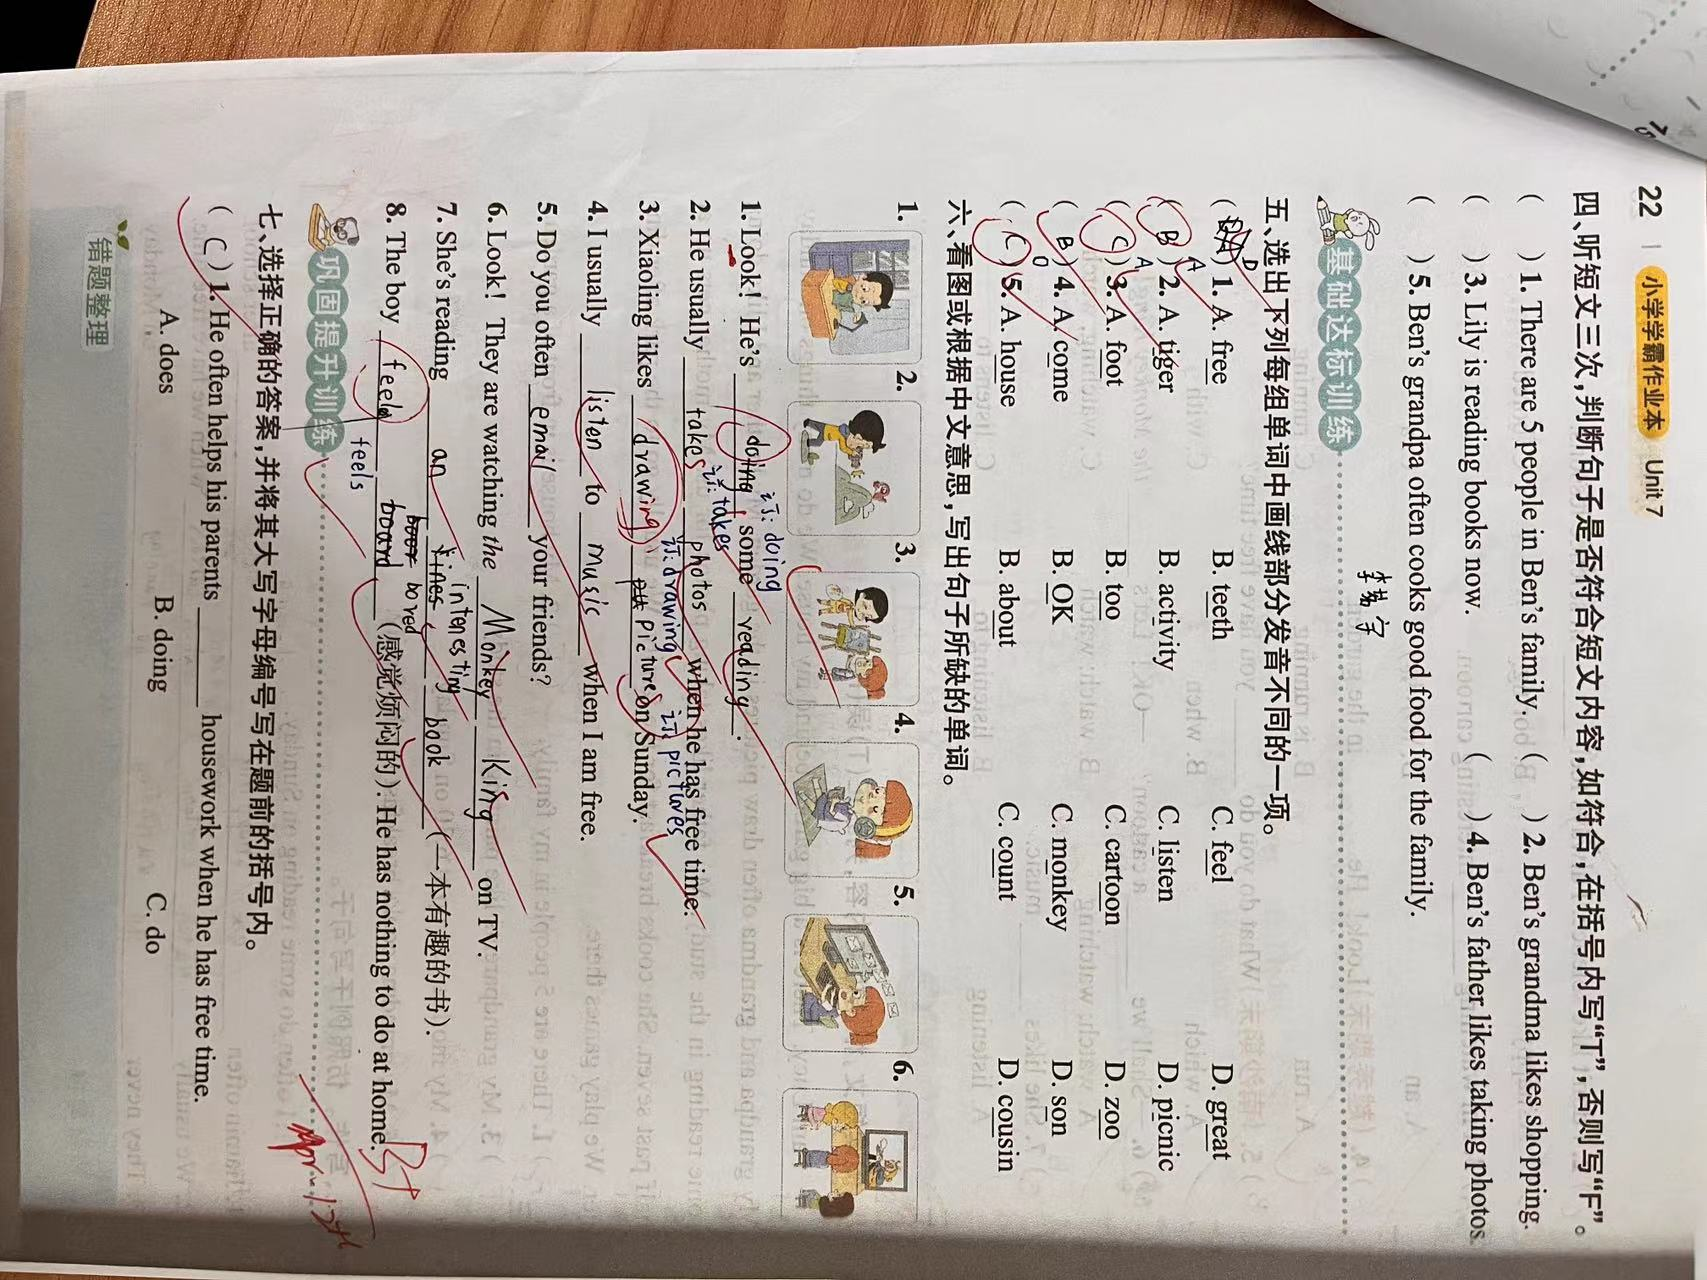 22 | 小学学霸作业本 Unit 7
四、听短文三次,判断句子是否符合短文内容,如符合,在括号内写“T”,否则写“F”。
( ) 1. There are 5 people in Ben's family. ( ) 2. Ben's grandma likes shopping.
( ) 3. Lily is reading books now. ( ) 4. Ben's father likes taking photos.
( ) 5. Ben's grandpa often cooks good food for the family.
基础达标训练
五、选出下列每组单词中画线部分发音不同的一项。
( D ) 1. A. free B. teeth C. feel D. great
( B A ) 2. A. tiger B. activity C. listen D. picnic
( C A ) 3. A. foot B. too C. cartoon D. zoo
( B ) 4. A. come B. OK C. monkey D. son
( C D ) 5. A. house B. about C. count D. cousin
六、看图或根据中文意思,写出句子所缺的单词。
1. 2. 3. 4. 5. 6.
1. Look! He's doing some reading.
订: doing
2. He usually takes photos when he has free time.
订: takes
3. Xiaoling likes drawing pictures on Sunday.
订: drawing 订: pictures
4. I usually listen to music when I am free.
5. Do you often email your friends?
6. Look! They are watching the Monkey King on TV.
7. She's reading an interesting book (一本有趣的书).
8. The boy feel board (感觉烦闷的). He has nothing to do at home.
feels bored
巩固提升训练
七、选择正确的答案,并将其大写字母编号写在题前的括号内。
( C ) 1. He often helps his parents ______ housework when he has free time.
A. does B. doing C. do
错题整理